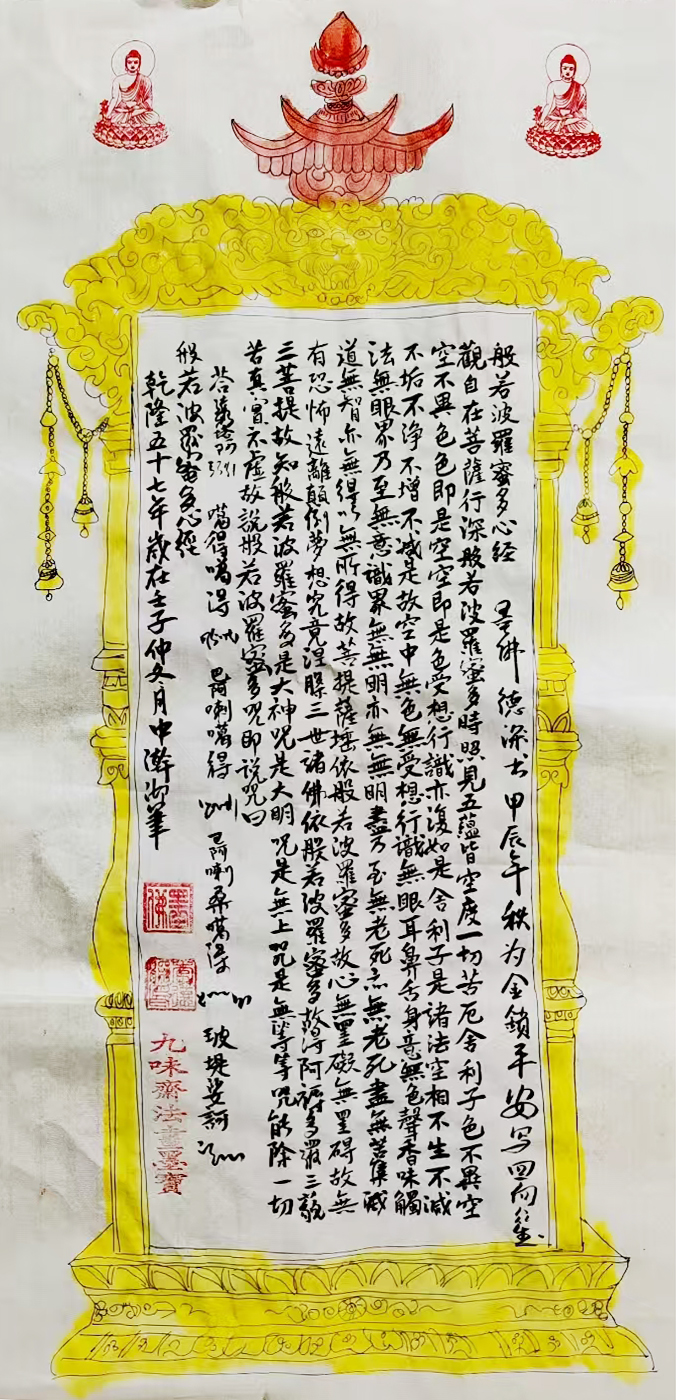 般若波羅蜜多心経 墨佛 德 甲辰年秋为金鎖平安写回向
觀自在菩薩行深般若波羅蜜多時照見五蘊皆空度一切苦厄舍利子色不異空
空不異色色即是空空即是色受想行識亦復如是舍利子是諸法空相不生不滅
不垢不浄不增不减是故空中無色無受想行識無眼耳鼻舌身意無色聲香味觸
法無眼界乃至無意識界無無明亦無無明盡乃至無老死亦無老死盡無苦集滅
道無智亦無得以無所得故菩提薩埵依般若波羅蜜多故心無罣礙無罣碍故無
有恐怖遠離顛倒夢想究竟涅槃三世諸佛依般若波羅蜜多故得阿耨多羅三藐
三菩提故知般若波羅蜜多是大神呪是大明呪是無上呪是無等等呪能除一切
苦真實不虛故說般若波羅蜜多呪即說呪曰
噶得噶得 巴阿喇噶得 巴阿喇桑噶得 玻堤娑訶
般若波羅蜜多心經
乾隆五十七年歲在壬子仲冬月中澣御筆
墨佛
九味齋法畫墨寶